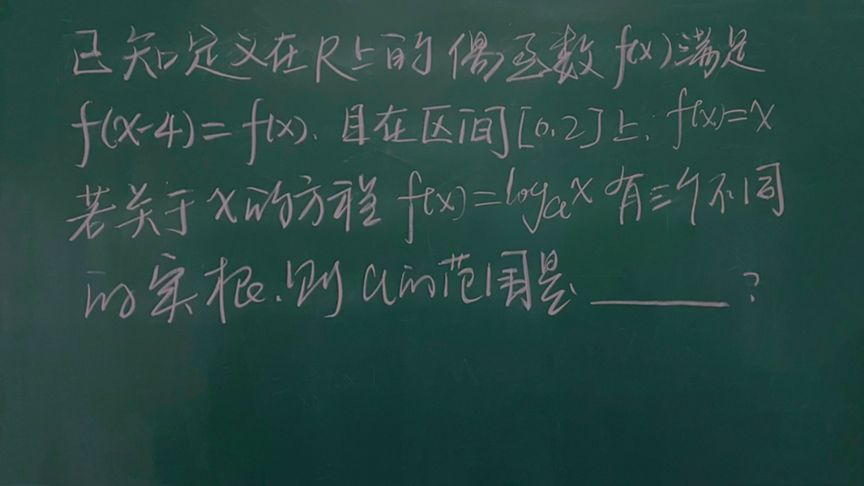 已知定义在R上的偶函数f(x)满足
f(x-4)=f(x).且在区间[0.2]上.f(x)=x
若关于x的方程f(x)=logₐx有三个不同
的实根.则a的范围是______?